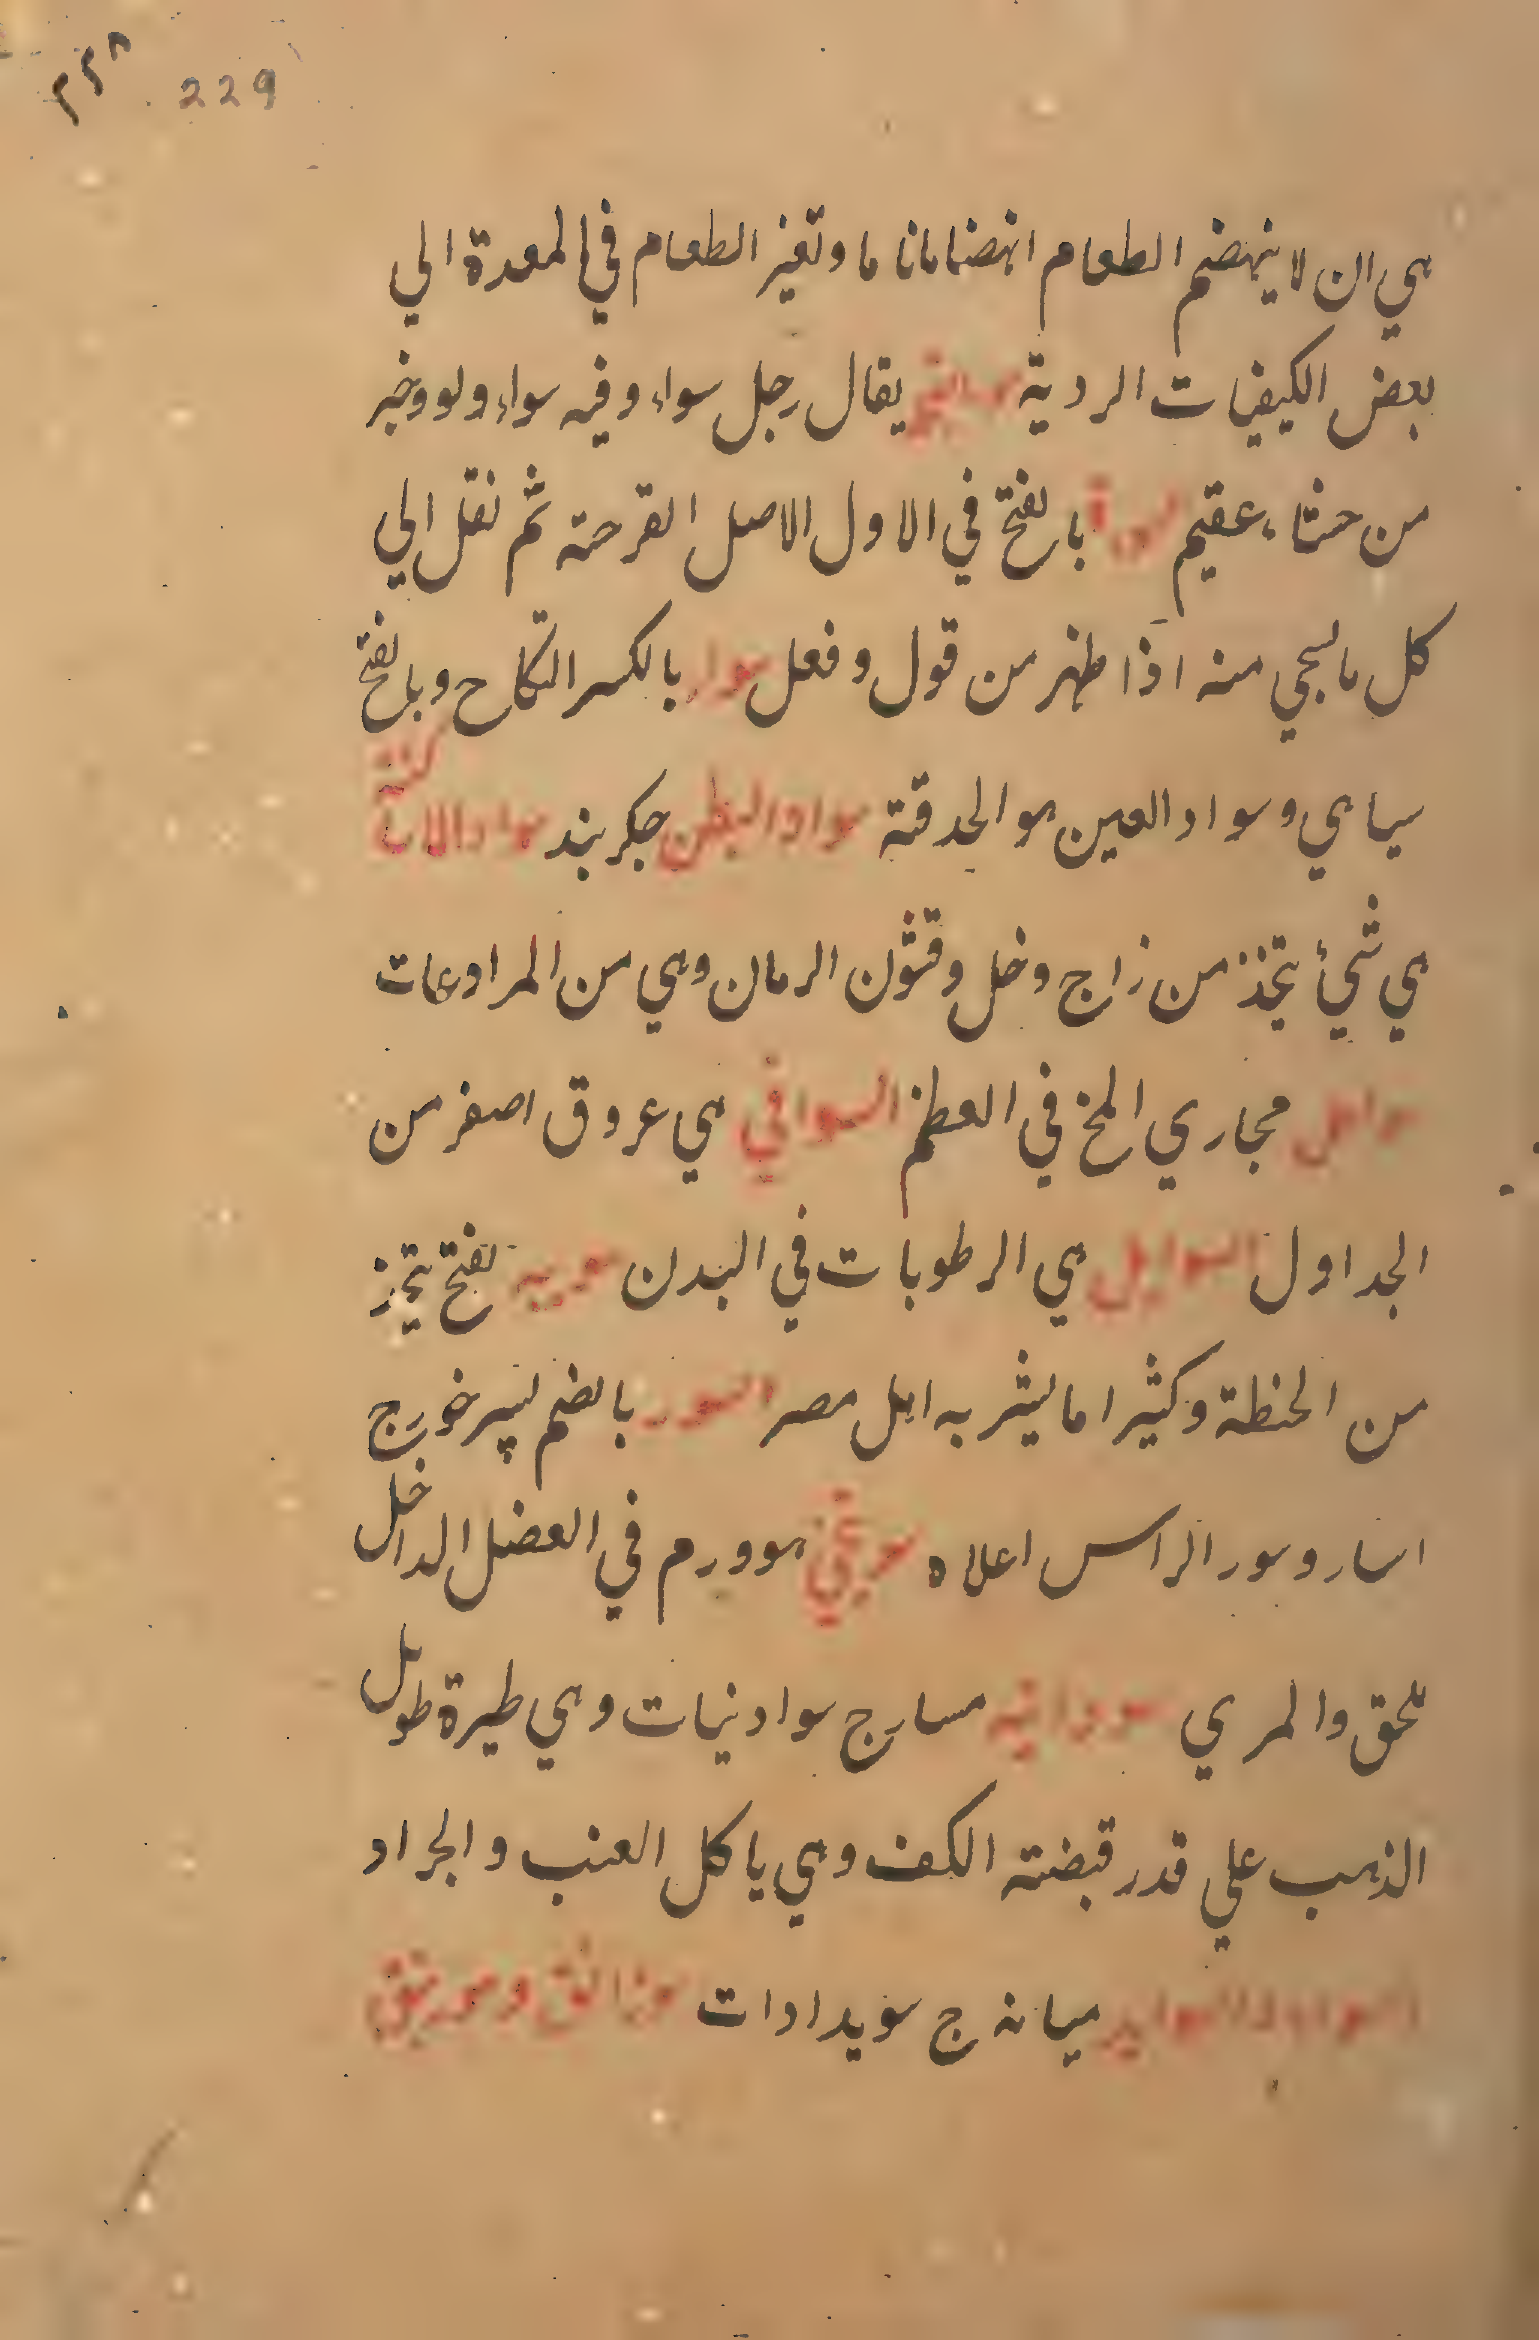 ۲۲۸ 229
هي ان لا ينهضم الطعام انهضاماتا ما وتغير الطعام في المعدة الي
بعض الكيفيات الردية يقال رجل سواء وفيه سواء ولو وخير
من حسناء عقيم سوءة بالفتح في الاول الاصل القرحته ثم نقل الي
كل ما يستحي منه اذا ظهر من قول وفعل سواد بالكسر التكاح وبالفتح
سياهي و سواد العين هو الحدقته سواد البطن جكر بند سواد
هي شيئ يتخذ من زاج وخل وقشون الرمان وهي من المرادعات
سواعل مجاري المخ في العظم السواقي هي عروق اصغر من
الجداول السوايل هي الرطوبات في البدن سوبيه بفتح يتخذ
من الحنظة وكثيرا ما يشربه اهل مصر السور بالضم پسر خورج
اسار وسور الراس اعلاه هو ورم في العضل الداخل
للحق والمري سودانيه مسارج سوادنيات وهي طيرة طويل
الذهب علي قدر قبضته الكف وهي ياكل العنب والجراد
ميانه ج سويدادات